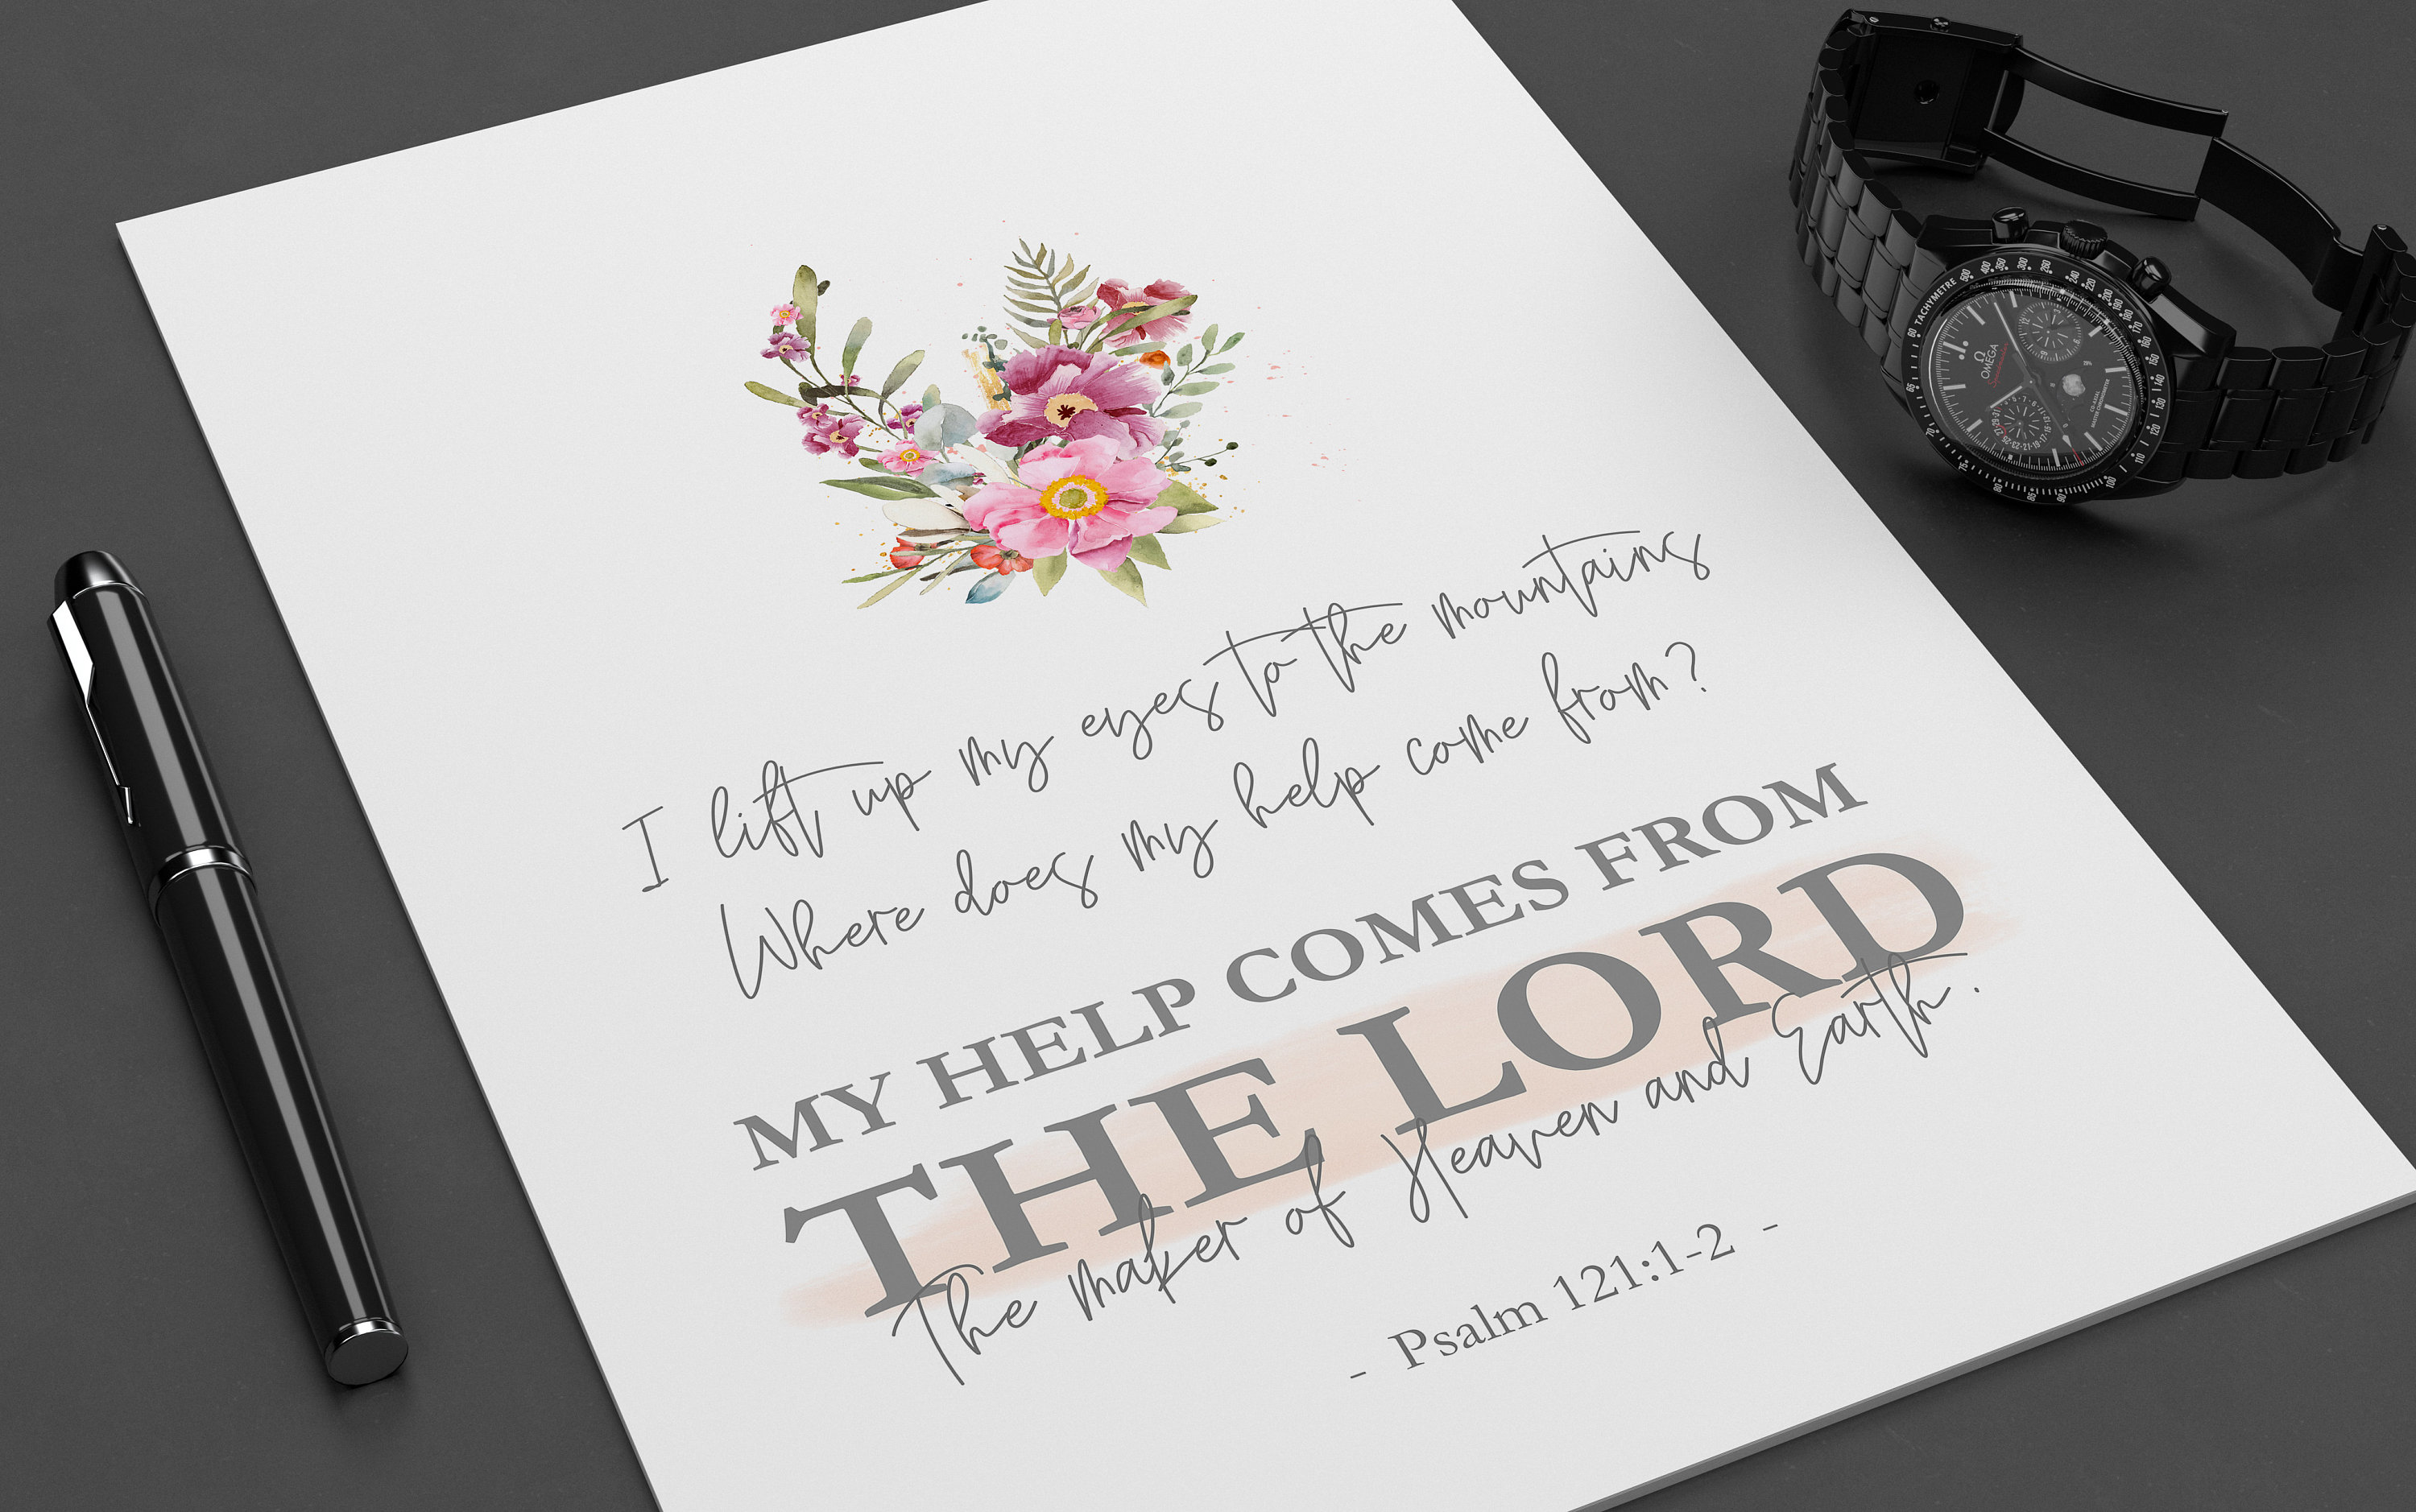 I lift up my eyes to the mountains
Where does my help come from?
MY HELP COMES FROM
THE LORD
The maker of Heaven and Earth.
- Psalm 121:1-2 -
OMEGA
Speedmaster
CO-AXIAL
MASTER CHRONOMETER
TACHYMETRE